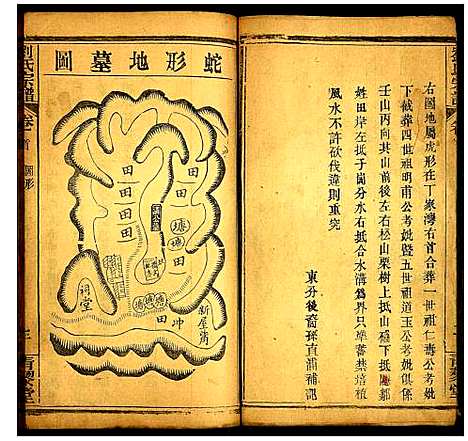 右圖地屬虎形在丁家灣右首合葬一世祖仁壽公考妣
下截葬四世祖明甫公考妣曁五世祖道玉公考妣俱係
壬山丙向其山前後左右松山栗樹上抵山頂下抵鄒
姓田岸左抵子崗分水右抵合水溝爲界只準蓄禁培植
風水不許砍伐違則重究
東分後裔孫直浦補記
蛇形地墓圖
田
田
田
田
田
塘
塘
祠堂
新屋
冲
田
劉氏宗譜
卷首
圖形